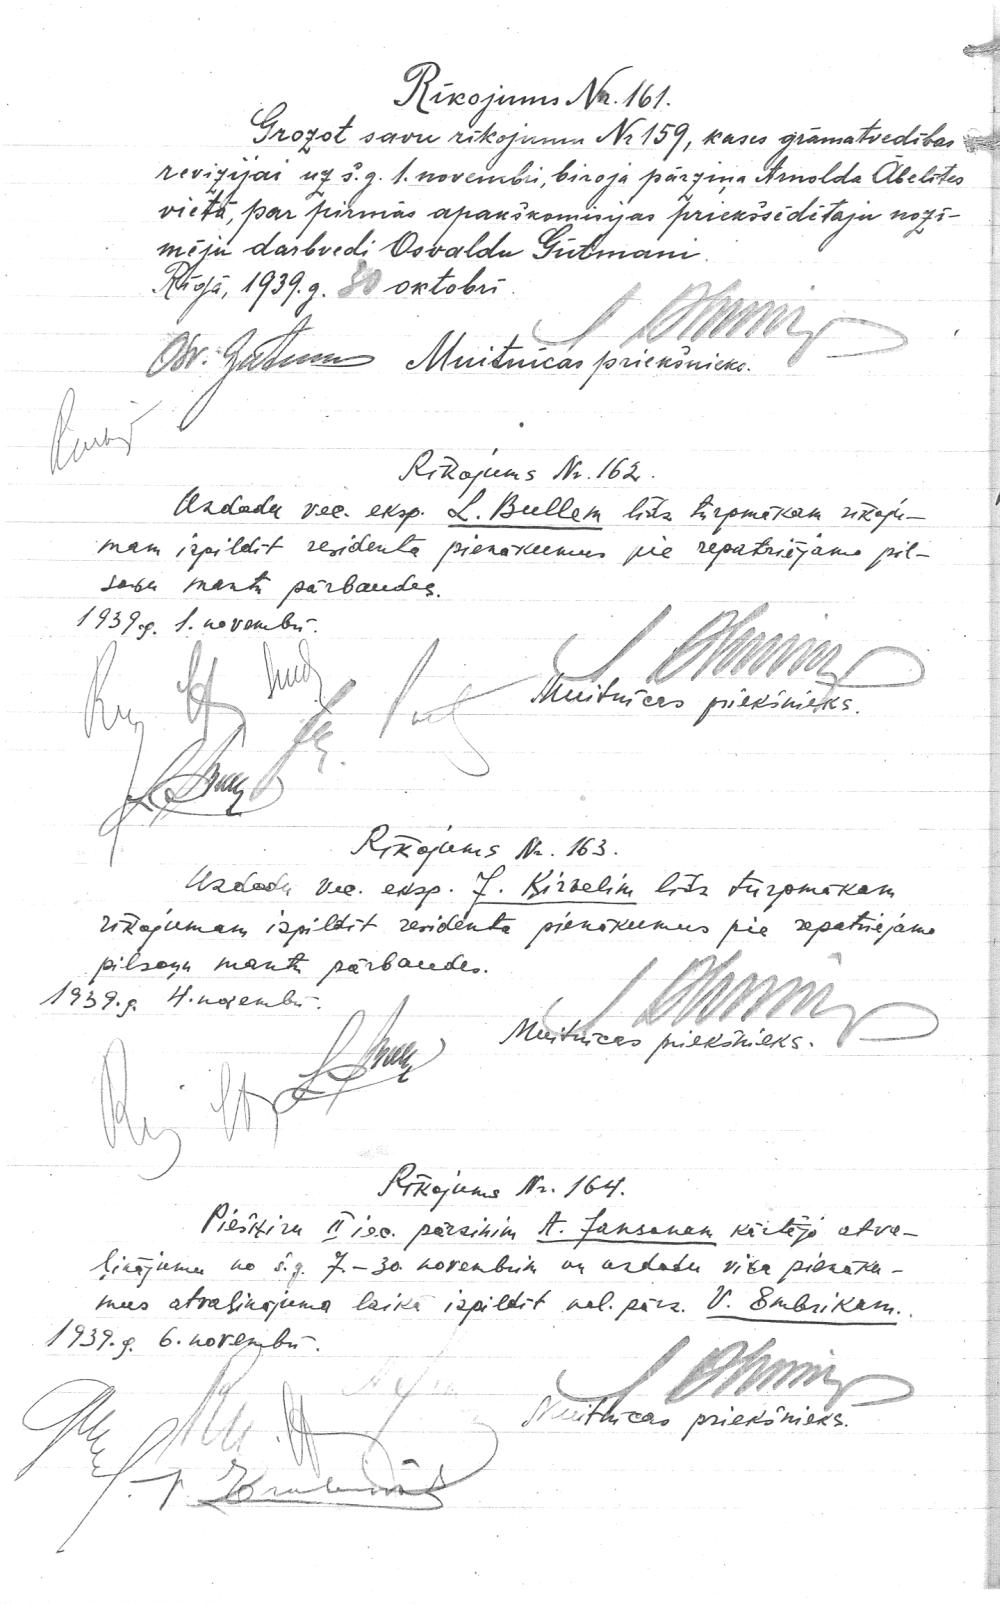 Rīkojums Nr. 161.
Grozot savu rīkojumu Nr 159, kases grāmatvedības
revīzijai uz š.g. 1. novembri, biroja pārziņa Arnolda Ābelītes
vietā, par pirmās apakškomisijas priekšsēdētāju nozī-
mēju darbvedi Osvaldu Gūtmani.
Rīgā, 1939.g. 30 oktobrī.
Muitnīcas priekšnieks.
Rīkojums Nr. 162.
Uzdodu vec. eksp. L. Bullem līdz turpmākam rīkoju-
mam izpildīt residenta pienākumus pie repatriējamo pil-
soņu mantu pārbaudes.
1939.g. 1. novembrī.
Muitnīcas priekšnieks.
Rīkojums Nr. 163.
Uzdodu vec. eksp. J. Ķirzelim līdz turpmākam
rīkojumam izpildīt residenta pienākumus pie repatriējamo
pilsoņu mantu pārbaudes.
1939.g. 4. novembrī.
Muitnīcas priekšnieks.
Rīkojums Nr. 164.
Piešķiru II iec. pārzinim A. Jansonam kārtējo atva-
ļinājumu no š.g. 7.-30. novembrim un uzdodu viņa pienāku-
mus atvaļinājuma laikā izpildīt pal. pārz. V. Embrikam.
1939.g. 6. novembrī.
Muitnīcas priekšnieks.